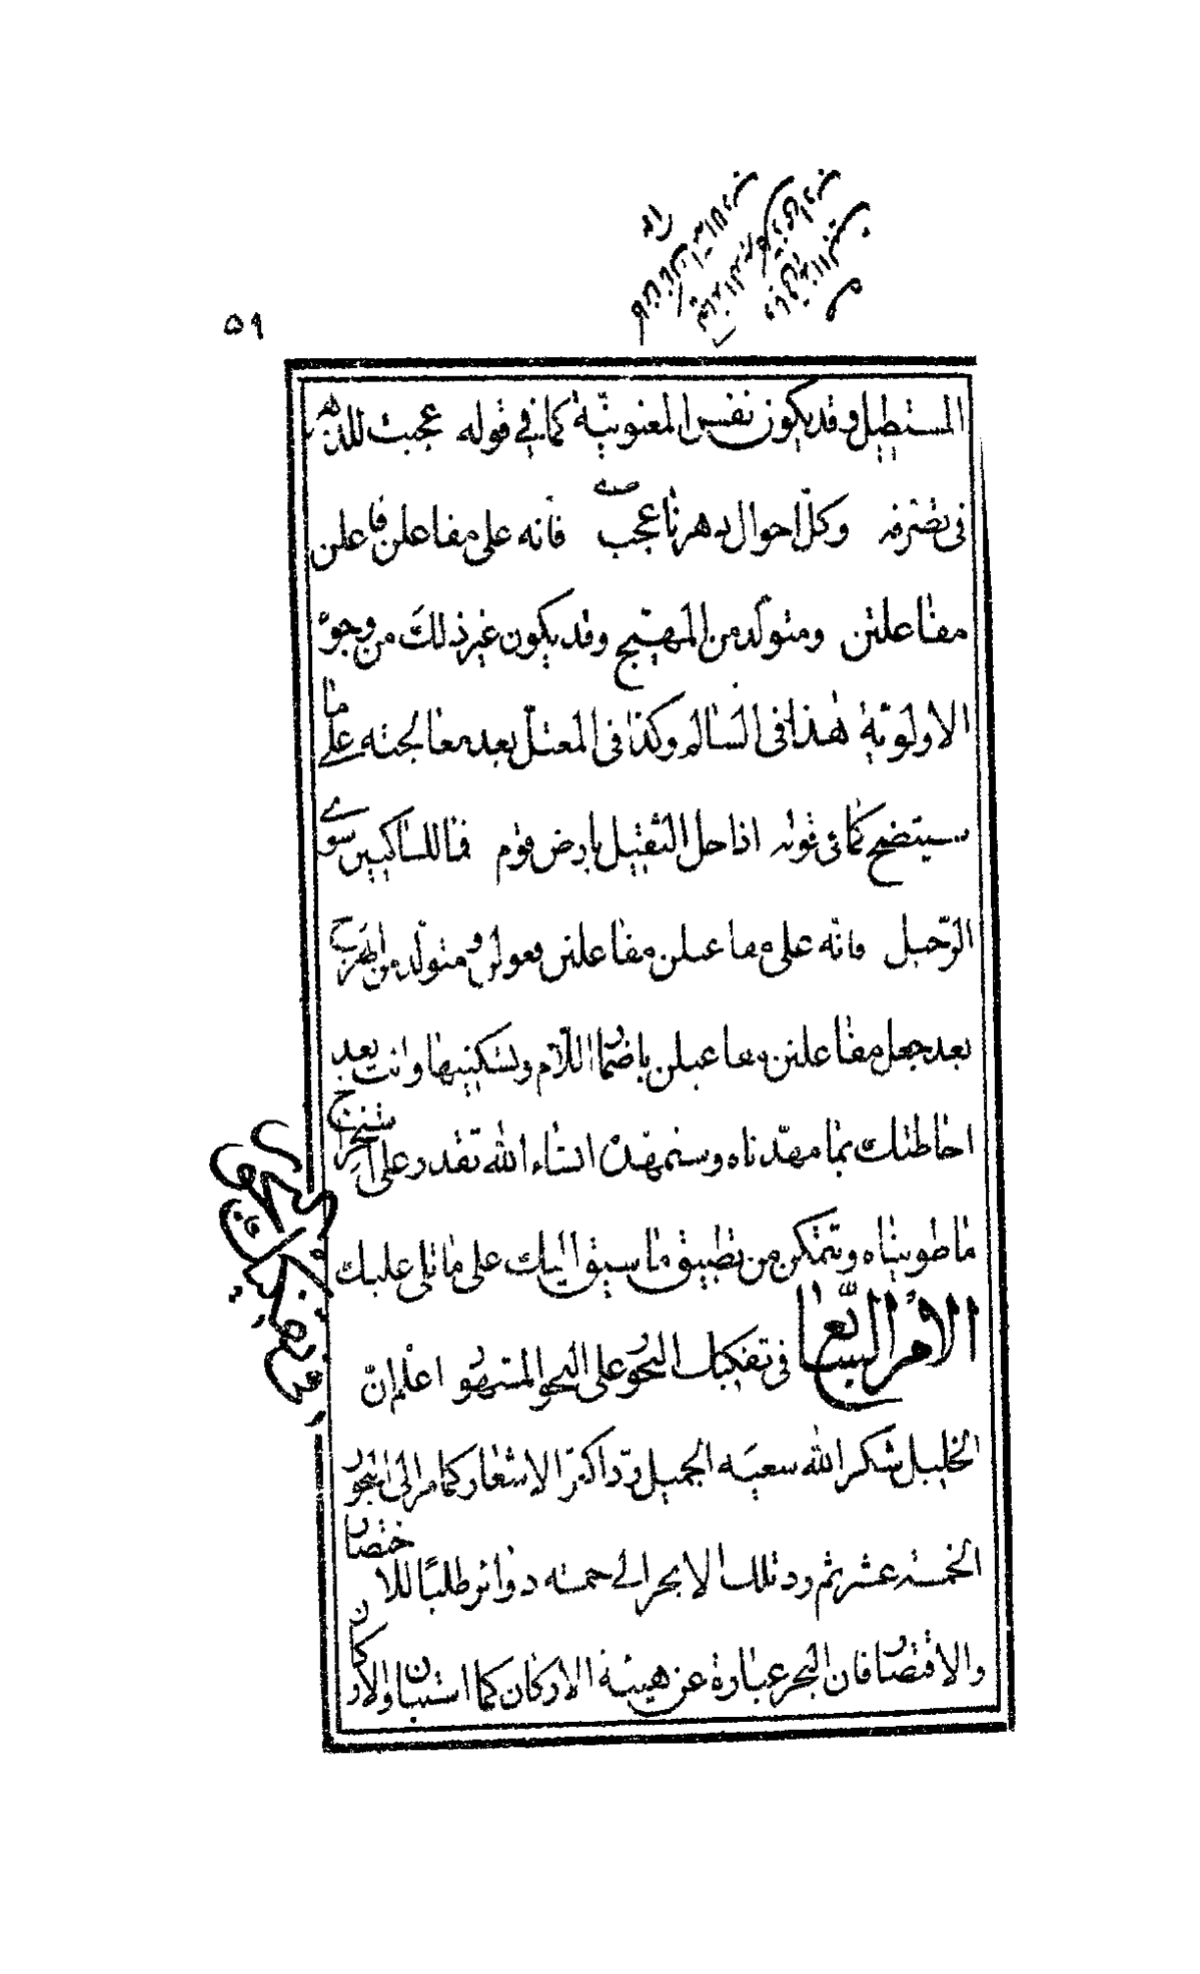 ٥٩
المستطيل وقد يكون نفس المعنوية كما في قوله عجبت للدهر
في تصرفه وكلّ احوال دهرنا عجب فانه على مفاعلن فاعلن
مفاعلتن ومتولّد من المهيّج وقد يكون غير ذلك من وجوه
الاولويّة هذا في السّالم وكذا في المعتلّ بعد معالجته على ما
سيتضح كما في قوله اذا حل الثقيل بارض قوم فما للساكنين سوى
الرّحيل فانّه على مفاعيلن مفاعلتن فعولن ومتولّد من الهزج
بعد جعل مفاعلتن مفاعيلن باضمار اللّام وتسكينها وانت بعد
احاطتك بما مهّدناه وسنمهّده انشاء الله تقدر على استخراج
ما طويناه وتتمكن من تطبيق ما سيق اليك على ما تلى عليك
الامر السّابع في تفكيك البحور على النحو المشهور اعلم انّ
الخليل شكر الله سعيه الجميل ردّ اكثر الاشعار كما مر الى البحور
الخمسة عشر ثم رد تلك الابحر الى خمسة دوائر طلبًا للاختصار
والاقتصار فان البحر عبارة عن هيئة الاركان كما استبان والاركان